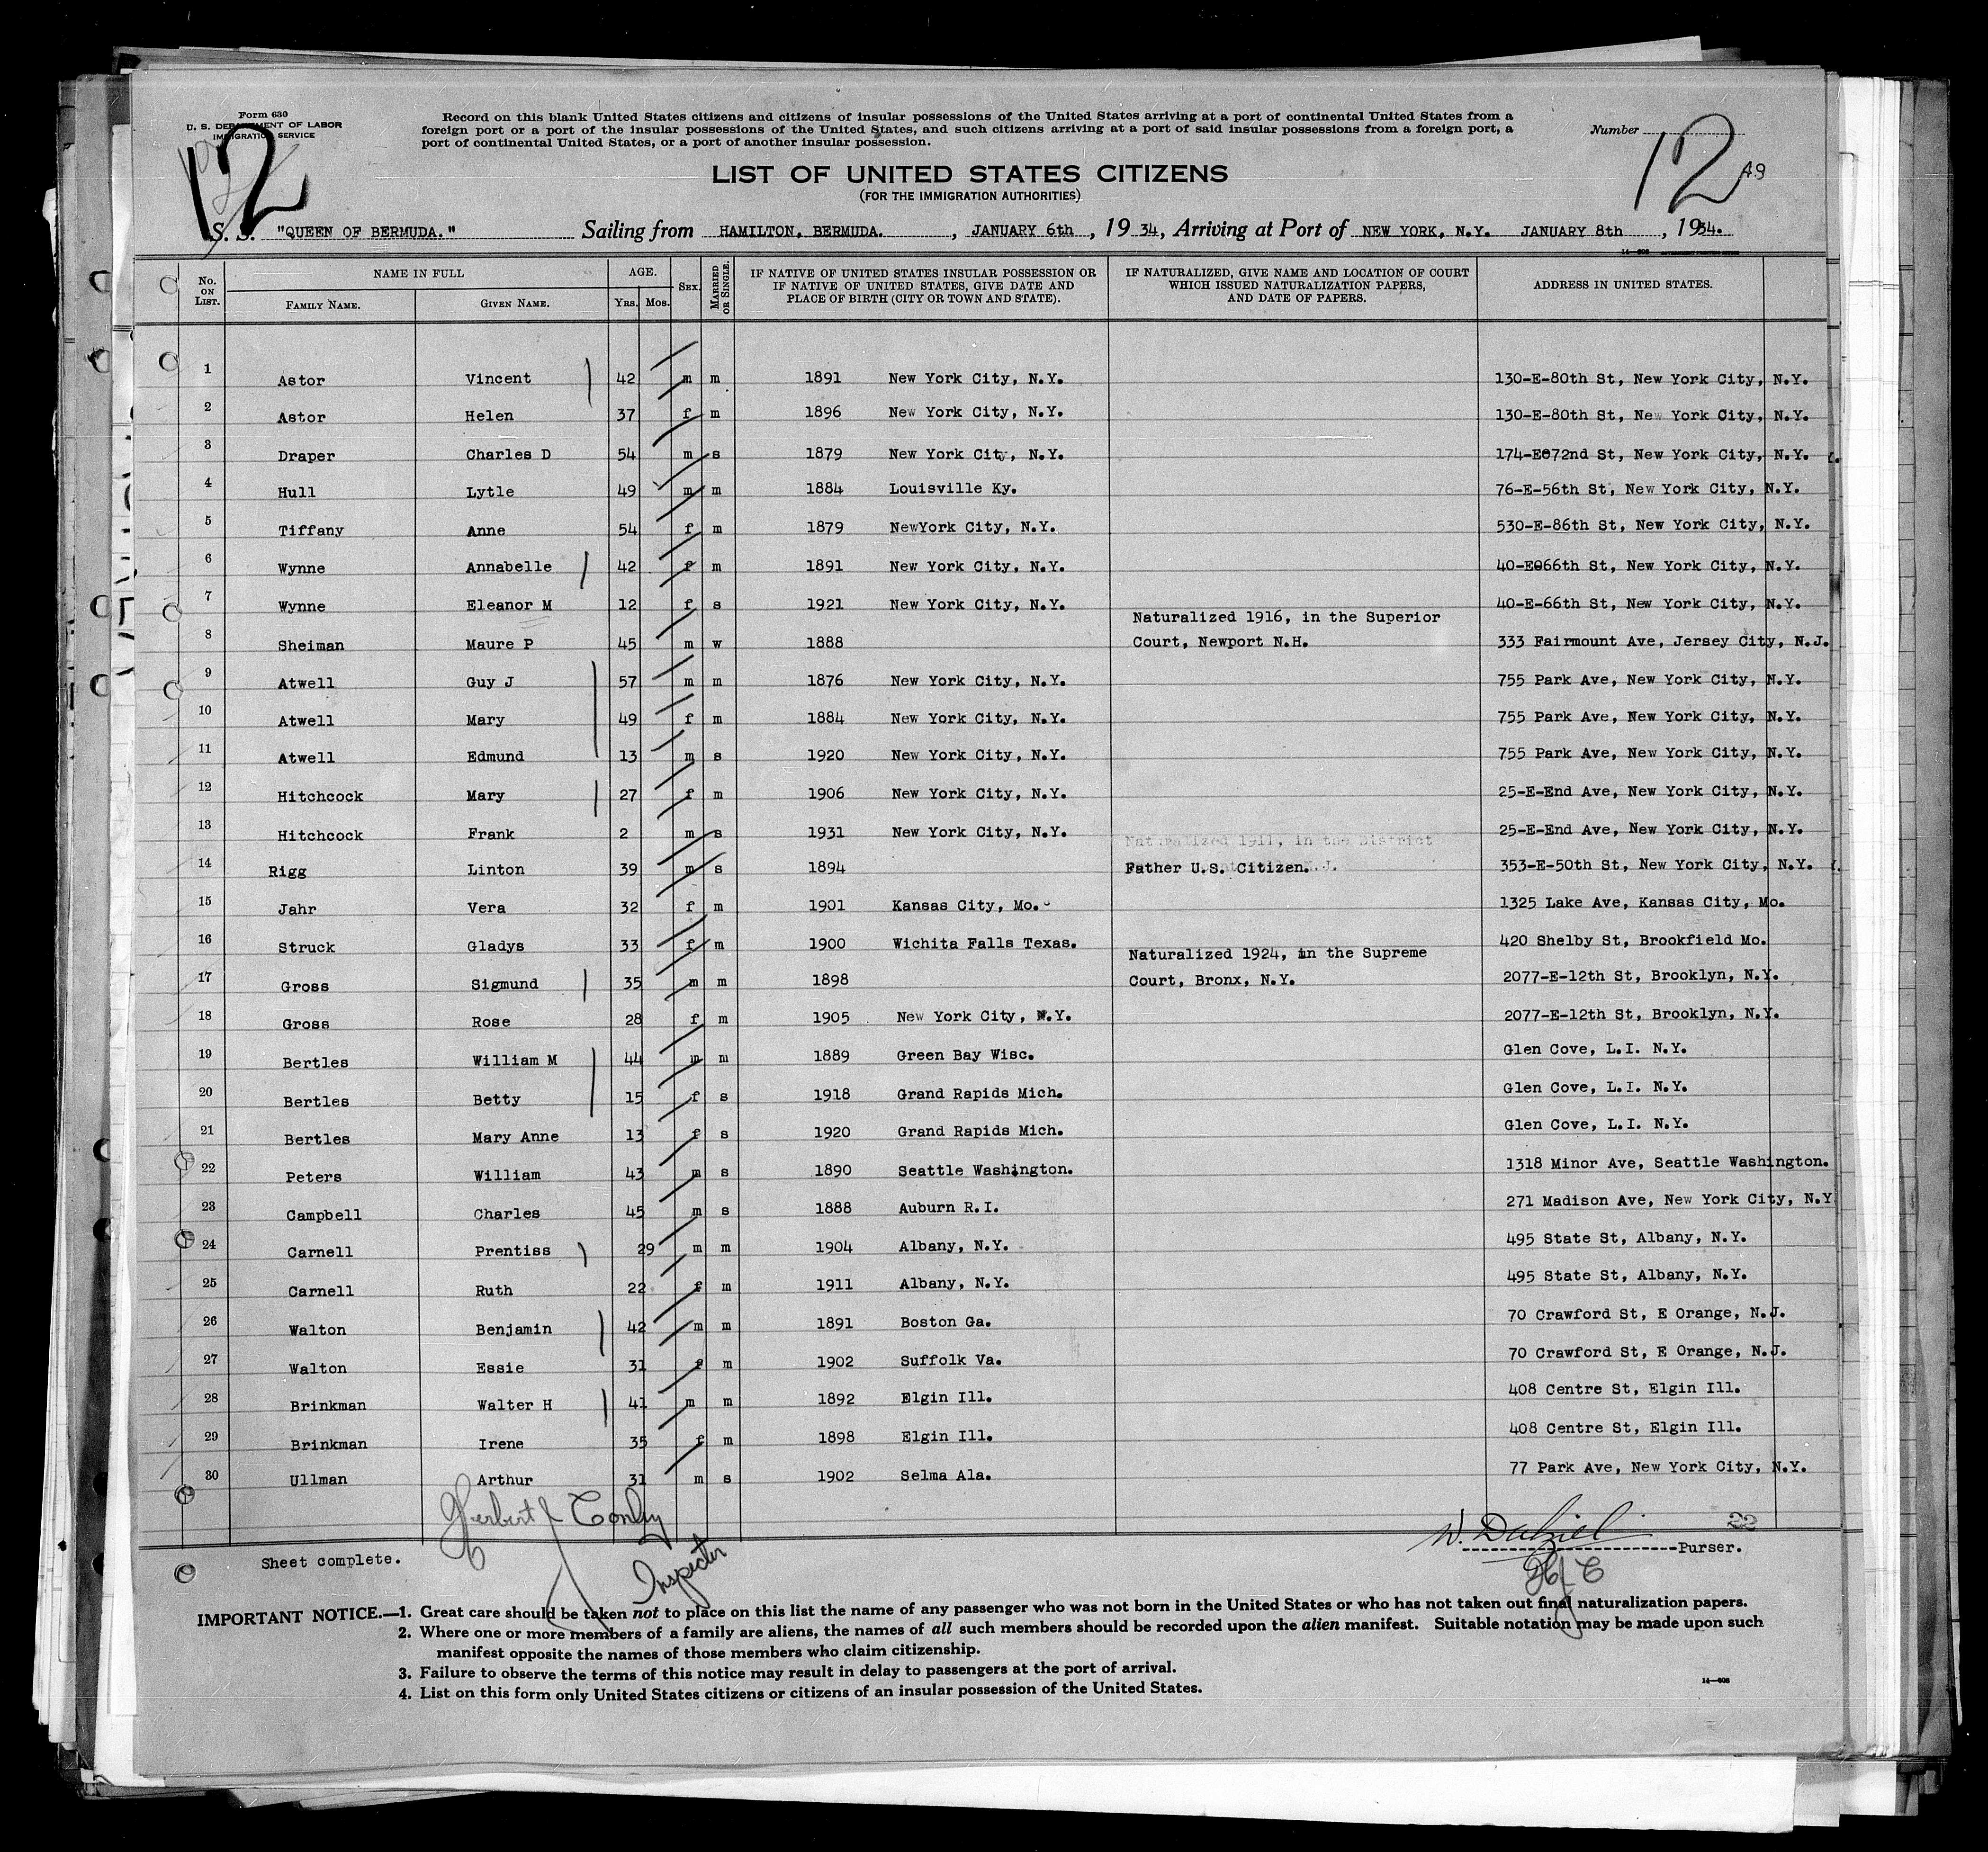 Form 630
U. S. DEPARTMENT OF LABOR
IMMIGRATION SERVICE
12
Record on this blank United States citizens and citizens of insular possessions of the United States arriving at a port of continental United States from a
foreign port or a port of the insular possessions of the United States, and such citizens arriving at a port of said insular possessions from a foreign port, a
port of continental United States, or a port of another insular possession.
Number
12
LIST OF UNITED STATES CITIZENS
(FOR THE IMMIGRATION AUTHORITIES)
S. S. "QUEEN OF BERMUDA." Sailing from HAMILTON, BERMUDA. , JANUARY 6th , 19 34, Arriving at Port of NEW YORK, N.Y. JANUARY 8th , 1934.
14—608
No. ON LIST. NAME IN FULL AGE. SEX. MARRIED OR SINGLE. IF NATIVE OF UNITED STATES INSULAR POSSESSION OR IF NATIVE OF UNITED STATES, GIVE DATE AND PLACE OF BIRTH (CITY OR TOWN AND STATE). IF NATURALIZED, GIVE NAME AND LOCATION OF COURT WHICH ISSUED NATURALIZATION PAPERS, AND DATE OF PAPERS. ADDRESS IN UNITED STATES.
FAMILY NAME. GIVEN NAME. YRS. MOS.
1 Astor Vincent 42 m m 1891 New York City, N.Y. 130-E-80th St, New York City, N.Y.
2 Astor Helen 37 f m 1896 New York City, N.Y. 130-E-80th St, New York City, N.Y.
3 Draper Charles D 54 m s 1879 New York City, N.Y. 174-E072nd St, New York City, N.Y.
4 Hull Lytle 49 m m 1884 Louisville Ky. 76-E-56th St, New York City, N.Y.
5 Tiffany Anne 54 f m 1879 NewYork City, N.Y. 530-E-86th St, New York City, N.Y.
6 Wynne Annabelle 42 f m 1891 New York City, N.Y. 40-E066th St, New York City, N.Y.
7 Wynne Eleanor M 12 f s 1921 New York City, N.Y. 40-E-66th St, New York City, N.Y.
Naturalized 1916, in the Superior
8 Sheiman Maure P 45 m w 1888 Court, Newport N.H. 333 Fairmount Ave, Jersey City, N.J.
9 Atwell Guy J 57 m m 1876 New York City, N.Y. 755 Park Ave, New York City, N.Y.
10 Atwell Mary 49 f m 1884 New York City, N.Y. 755 Park Ave, New York City, N.Y.
11 Atwell Edmund 13 m s 1920 New York City, N.Y. 755 Park Ave, New York City, N.Y.
12 Hitchcock Mary 27 f m 1906 New York City, N.Y. 25-E-End Ave, New York City, N.Y.
13 Hitchcock Frank 2 m s 1931 New York City, N.Y. 25-E-End Ave, New York City, N.Y.
Naturalized 1911, in the District
14 Rigg Linton 39 m s 1894 Father U.S. Citizen. 353-E-50th St, New York City, N.Y.
15 Jahr Vera 32 f m 1901 Kansas City, Mo. 1325 Lake Ave, Kansas City, Mo.
16 Struck Gladys 33 f m 1900 Wichita Falls Texas. 420 Shelby St, Brookfield Mo.
Naturalized 1924, in the Supreme
17 Gross Sigmund 35 m m 1898 Court, Bronx, N.Y. 2077-E-12th St, Brooklyn, N.Y.
18 Gross Rose 28 f m 1905 New York City, N.Y. 2077-E-12th St, Brooklyn, N.Y.
19 Bertles William M 44 m m 1889 Green Bay Wisc. Glen Cove, L.I. N.Y.
20 Bertles Betty 15 f s 1918 Grand Rapids Mich. Glen Cove, L.I. N.Y.
21 Bertles Mary Anne 13 f s 1920 Grand Rapids Mich. Glen Cove, L.I. N.Y.
22 Peters William 43 m s 1890 Seattle Washington. 1318 Minor Ave, Seattle Washington.
23 Campbell Charles 45 m s 1888 Auburn R.I. 271 Madison Ave, New York City, N.Y
24 Carnell Prentiss 29 m m 1904 Albany, N.Y. 495 State St, Albany, N.Y.
25 Carnell Ruth 22 f m 1911 Albany, N.Y. 495 State St, Albany, N.Y.
26 Walton Benjamin 42 m m 1891 Boston Ga. 70 Crawford St, E Orange, N.J.
27 Walton Essie 31 f m 1902 Suffolk Va. 70 Crawford St, E Orange, N.J.
28 Brinkman Walter H 41 m m 1892 Elgin Ill. 408 Centre St, Elgin Ill.
29 Brinkman Irene 35 f m 1898 Elgin Ill. 408 Centre St, Elgin Ill.
30 Ullman Arthur 31 m s 1902 Selma Ala. 77 Park Ave, New York City, N.Y.
Herbert J Conly
Inspector
W. Dalziel
22
Sheet complete.
Purser.
HJC
IMPORTANT NOTICE.—1. Great care should be taken not to place on this list the name of any passenger who was not born in the United States or who has not taken out final naturalization papers.
2. Where one or more members of a family are aliens, the names of all such members should be recorded upon the alien manifest. Suitable notation may be made upon such
manifest opposite the names of those members who claim citizenship.
3. Failure to observe the terms of this notice may result in delay to passengers at the port of arrival.
4. List on this form only United States citizens or citizens of an insular possession of the United States.
14—608